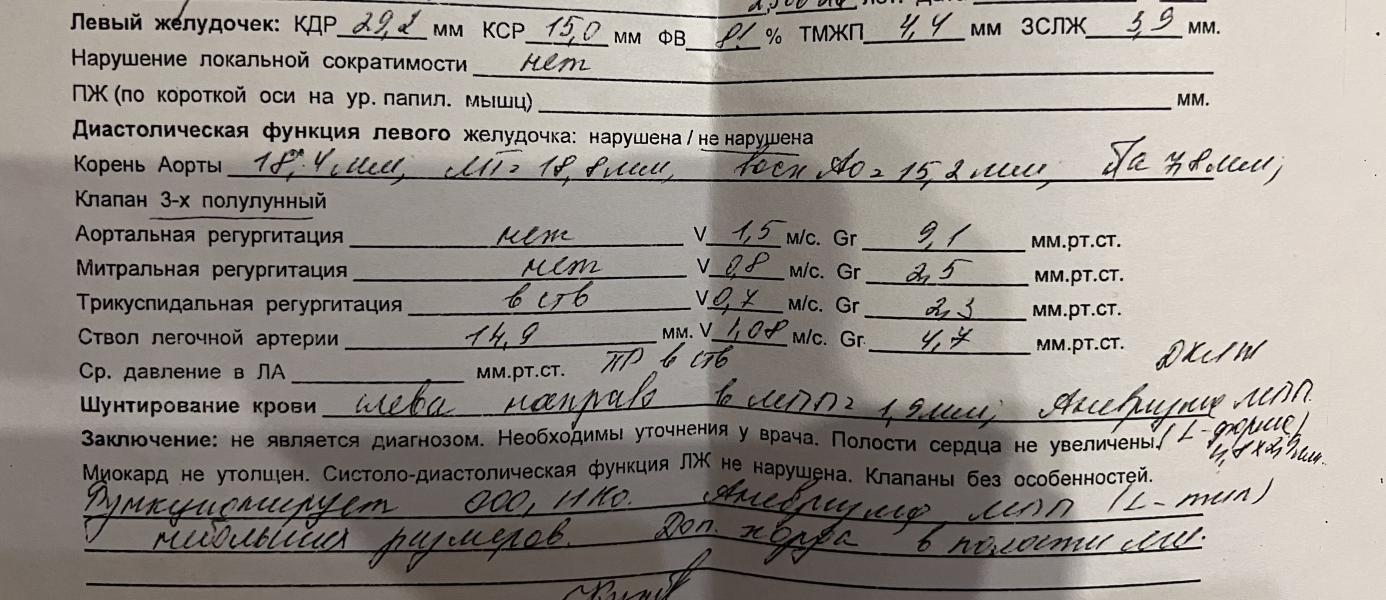 Левый желудочек: КДР 29,2 мм КСР 15,0 мм ФВ 81 % ТМЖП 4,4 мм ЗСЛЖ 3,9 мм.
Нарушение локальной сократимости нет
ПЖ (по короткой оси на ур. папил. мышц) мм.
Диастолическая функция левого желудочка: нарушена / не нарушена
Корень Аорты 18,4 мм, ЛП= 18,8 мм, восх Ао = 15,2 мм, 7,8 мм,
Клапан 3-х полулунный
Аортальная регургитация нет V 1,5 м/с. Gr 9,1 мм.рт.ст.
Митральная регургитация нет V 0,8 м/с. Gr 2,5 мм.рт.ст.
Трикуспидальная регургитация в ств V 0,7 м/с. Gr 2,3 мм.рт.ст.
Ствол легочной артерии 14,9 мм. V 1,08 м/с. Gr 4,7 мм.рт.ст.
Ср. давление в ЛА мм.рт.ст. ПР в ств ДХЛЖ
Шунтирование крови слева направо в МПП= 1,9 мм, Аневризма МПП
Заключение: не является диагнозом. Необходимы уточнения у врача. Полости сердца не увеличены. (L-форме)
4,8 х 2,9 мм.
Миокард не утолщен. Систоло-диастолическая функция ЛЖ не нарушена. Клапаны без особенностей.
Функционирует ООО, НКО. Аневризма МПП (L-тип)
небольших размеров. Доп. хорда в полости ЛЖ.